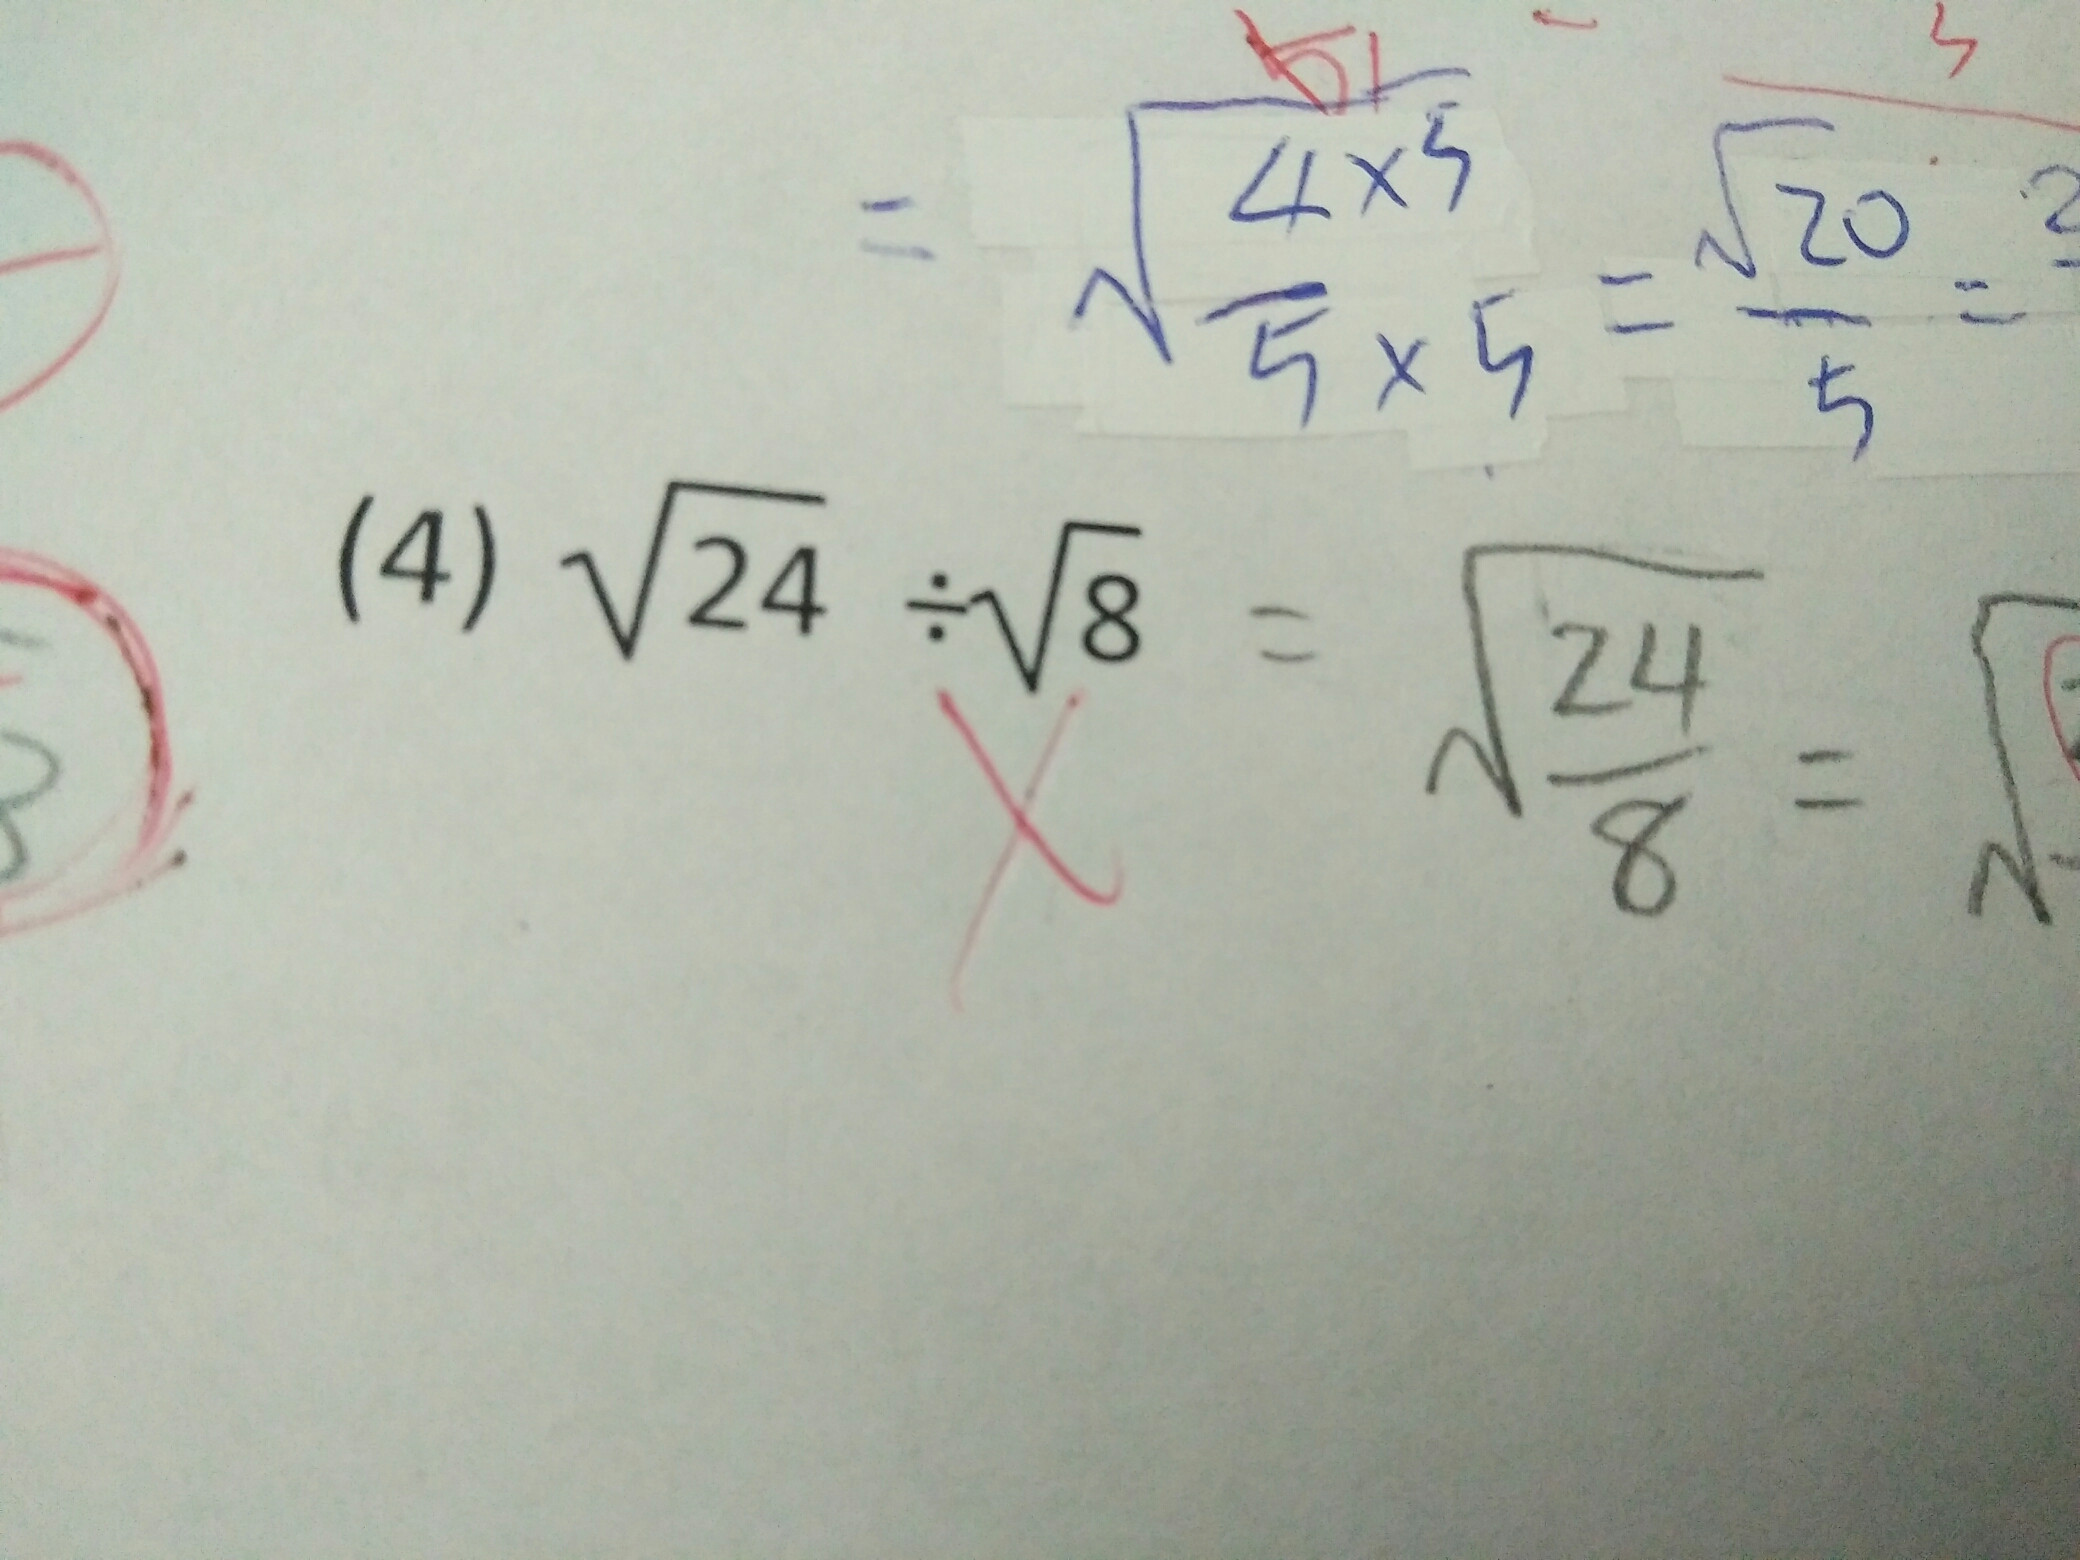 = √(4×5 / 5×5) = √20 / 5 = 2
(4) √24 ÷ √8 = √(24 / 8) = √